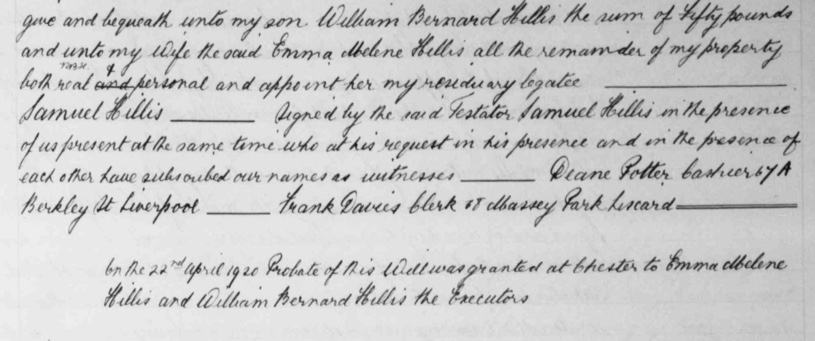 give and bequeath unto my son William Bernard Hillis the sum of Fifty pounds
and unto my Wife the said Emma Helene Hillis all the remainder of my property
both real & personal and appoint her my residuary legatee
Samuel Hillis Signed by the said Testator Samuel Hillis in the presence
of us present at the same time who at his request in his presence and in the presence of
each other have subscribed our names as witnesses Deane Potter Cashier 67 A
Berkley St Liverpool Frank Davies Clerk Massey Park Liscard
On the 22nd April 1920 Probate of this Will was granted at Chester to Emma Helene
Hillis and William Bernard Hillis the Executors